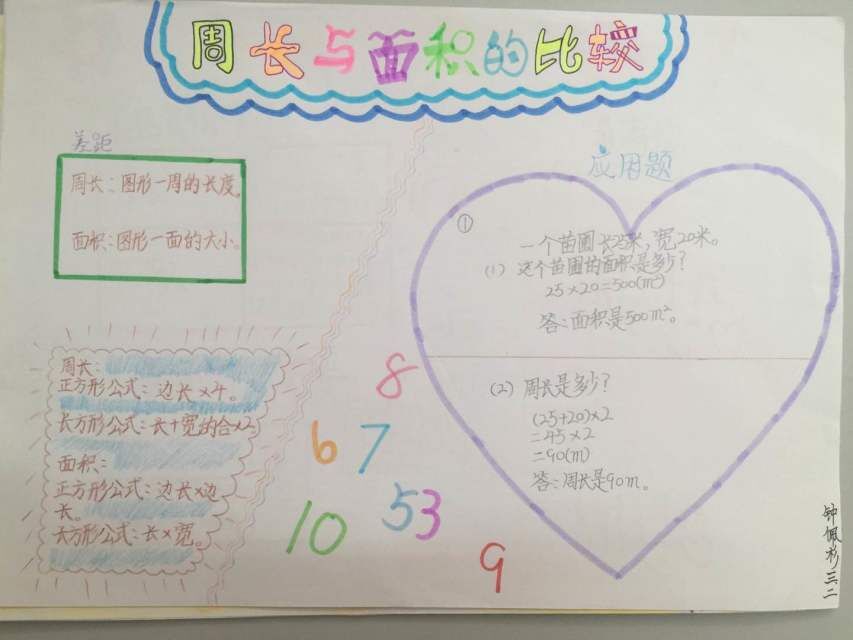 周长与面积的比较
差距
周长：图形一周的长度。
面积：图形一面的大小。
周长：
正方形公式：边长×4。
长方形公式：长+宽的合×2
面积：
正方形公式：边长×边
长。
长方形公式：长×宽。
8
6 7
10 53
9
应用题
①
一个苗圃长25米，宽20米。
(1) 这个苗圃的面积是多少？
25×20=500(m²)
答：面积是500m²。
(2) 周长是多少？
(25+20)×2
=45×2
=90(m)
答：周长是90m。
钟佩杉 三二